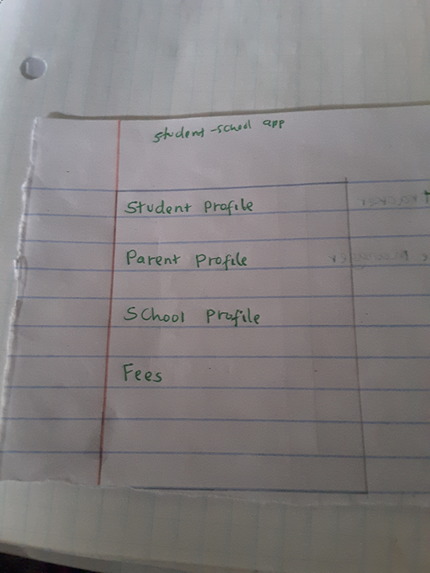 student-school app
Student Profile
Parent Profile
School Profile
Fees